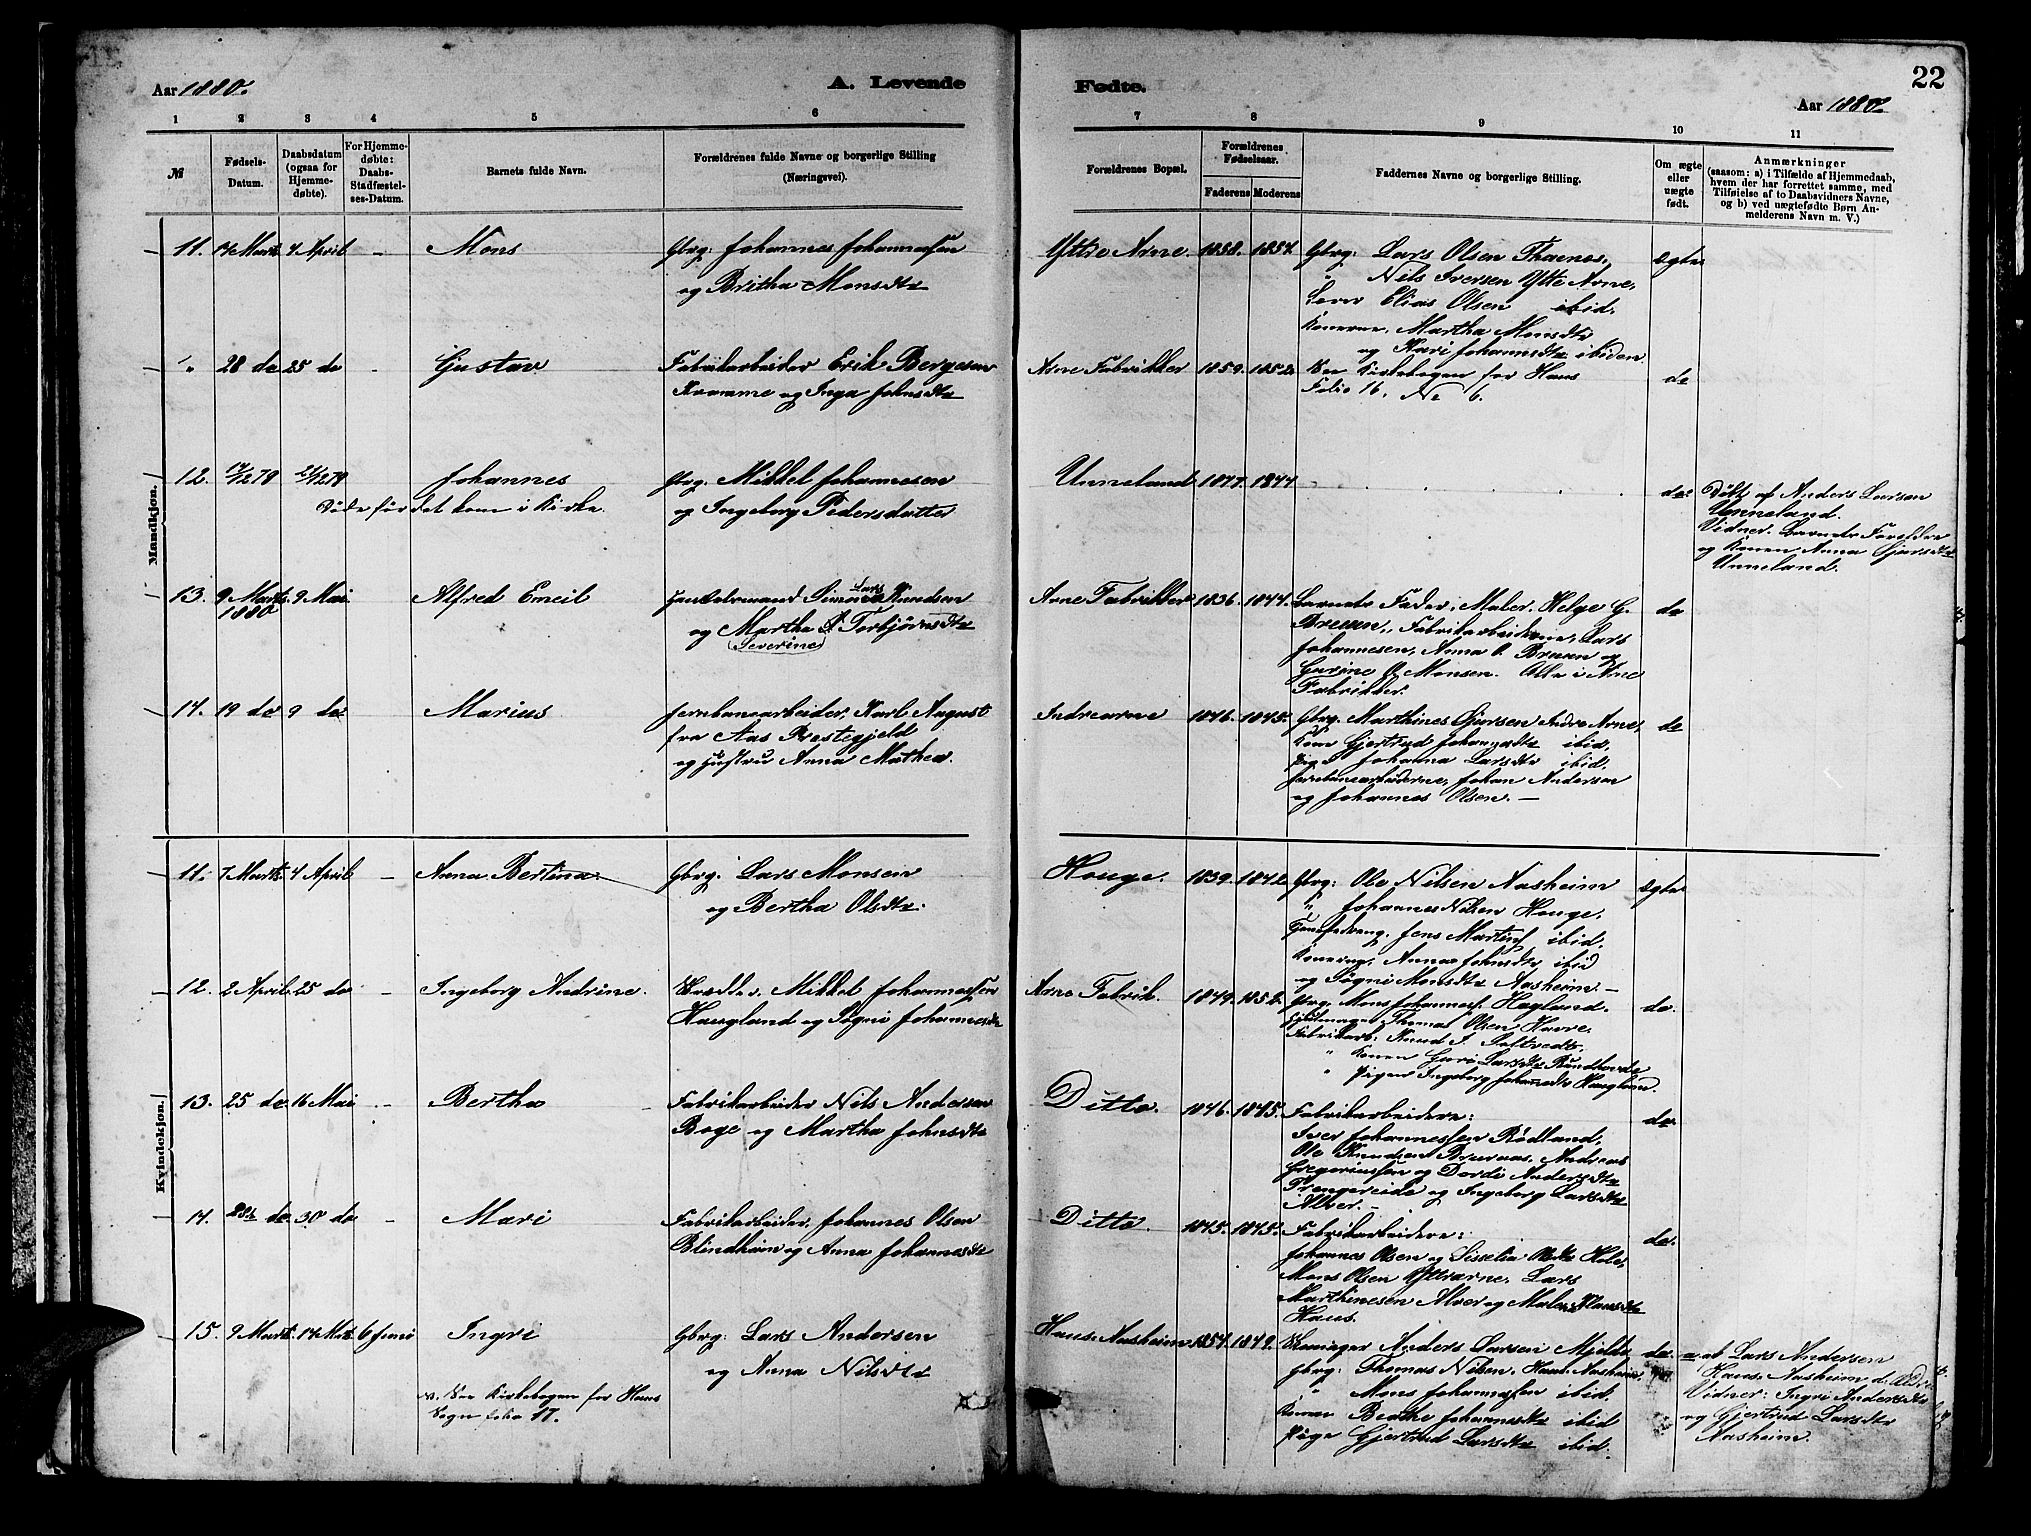 Aar 1880. A. Levende
Fødte. 22
Aar 1880.
1 2 3 4 5 6 7 8 9 10 11
№
Fødsels-
Datum.
Daabsdatum
(ogsaa for
Hjemme-
døbte).
For Hjemme-
døbte:
Daabs-
Stadfæstel-
ses-Datum.
Barnets fulde Navn.
Forældrenes fulde Navne og borgerlige Stilling
(Næringsvei).
Forældrenes Bopæl.
Forældrenes
Fødselsaar.
Faderens Moderens
Faddernes Navne og borgerlige Stilling.
Om ægte
eller
uægte
født.
Anmærkninger
(saasom: a) i Tilfælde af Hjemmedaab,
hvem der har forrettet samme, med
Tilføielse af to Daabsvidners Navne,
og b) ved uægtefødte Børn An-
melderens Navn m. V.)
Mandkjøn.
11. 14 Marts 4 April - Mons
Gbrg: Johannes Johannessen
og Britha Monsdtr
Yttre Arne. 1858. 1857.
Gbrg: Lars Olsen
Nils Iversen Ytte Arne,
Elias Olsen ibid.
Konerne, Martha Monsdtr
og Kari Johannsdtr ibiden
ægte
" 28 do 25 do - Gustav
Fabrikarbeider Erik Bergesen
Kvamme og Inga Johnsdtr
Arne Fabrikker 1859. 1852.
See Kirkebogen for Haus
Folio 16, No 6.
do
12. 14/12 79 21/12 79 Johannes
Døde før det kom i Kirke.
Gbrg: Mikkel Johannesen
og Ingeborg Pedersdatter
Unneland 1844
do.
Døbt af Anders Larsen
Unneland.
Vidner. Barnets Foreldre
og Konen Anna
Unneland.
13. 9 Marts 9 Mai - Alfred Emeil
1880
Lars
Knudsen
og Martha S Torbjørnsdtr
(Severine)
Arne Fabrikker 1836. 1844.
Barnets Fader, Maler. Helge G.
Bruun, Fabrikarbeiderne, Lars
Johannesen, Anna O. Bruun og
Gurine O. Monsen. Alle i Arne
Fabrikker.
do
14. 19 do 9 do - Marius
Jernbanearbeider, Karl August
fra Aas Prestegjeld
og Hustru Anna Mathea.
Indrearne 1846. 1845.
Gbrg: Marthines Andre Arne,
Kone Gjertrud Johannsdtr ibid,
Pige Johanna Larsdtr ibid.
Jernbanearbeiderne, Johan Andersen
og Johannes Olsen. -
do
Kvindekjøn.
11. 7 Marts 4 April - Anna Bertina
Gbrg: Lars Monsen
og Bertha Olsdtr.
Houge. 1839. 1842.
Gbrg: Ole Nilsen Aasheim
" Johannes Nilsen Houge,
Jens Martins ibid.
Anna Johnsdtr ibid
og Søgni Monsdtr Aasheim. -
ægte
12. 2 April 25 do - Ingeborg Andrine.
Mikkel Johannessen
Haugland og Søgni Johannesdtr
Arne Fabrik. 1849. 1852.
Gbrg. Mons Johannes. Hagland.
Thomas Olsen Havre.
Fabrikarb: Knud J.
" Konen Guri Larsdtr
" Pigen Ingeborg Johannesdtr Haugland.
do.
13. 25 do 16 Mai - Bertha
Fabrikarbeider Nils Andersen
Boge og Martha Johnsdtr
Ditto. 1846. 1845.
Fabrikarbeidere:
Iver Johannessen Rødland,
Ole Knudsen Bruraas, Andreas
Gregoriussen og Dordi Andersdtr
Trengereide og Ingeborg Larsdtr
Alver. -
do.
14. 28de do 30 do - Mari
Fabrikarbeider, Johannes Olsen
Blindheim og Anna Johannesdtr
Ditto. 1845. 1845.
Fabrikarbeidere:
Johannes Olsen og Sisselia Olsdtr Hole,
Mons Olsen Yttrearne, Lars
Marthinesen Alver og Malene Klausdtr
Haus.
do.
15. 9 Marts. 14 Mts. 6 Juni Ingri
Gbrg: Lars Andersen
og Anna Nilsdtr
v. See Kirkebogen for Haus
Sogn folio 17.
Haus. Aasheim 1854. 1849.
Anders Larsen Mjelde
Gbrg: Thomas Nilsen, Haus Aasheim
" Mons Johannessen ibid,
Konen Beathe Johannsdtr ibid
Pige Gjertrud Larsdtr ibid.
do.
af Lars Andersen
Haus. Aasheim
Vidner: Ingri Andersdtr
og Gjertrud Larsdtr
Aasheim.